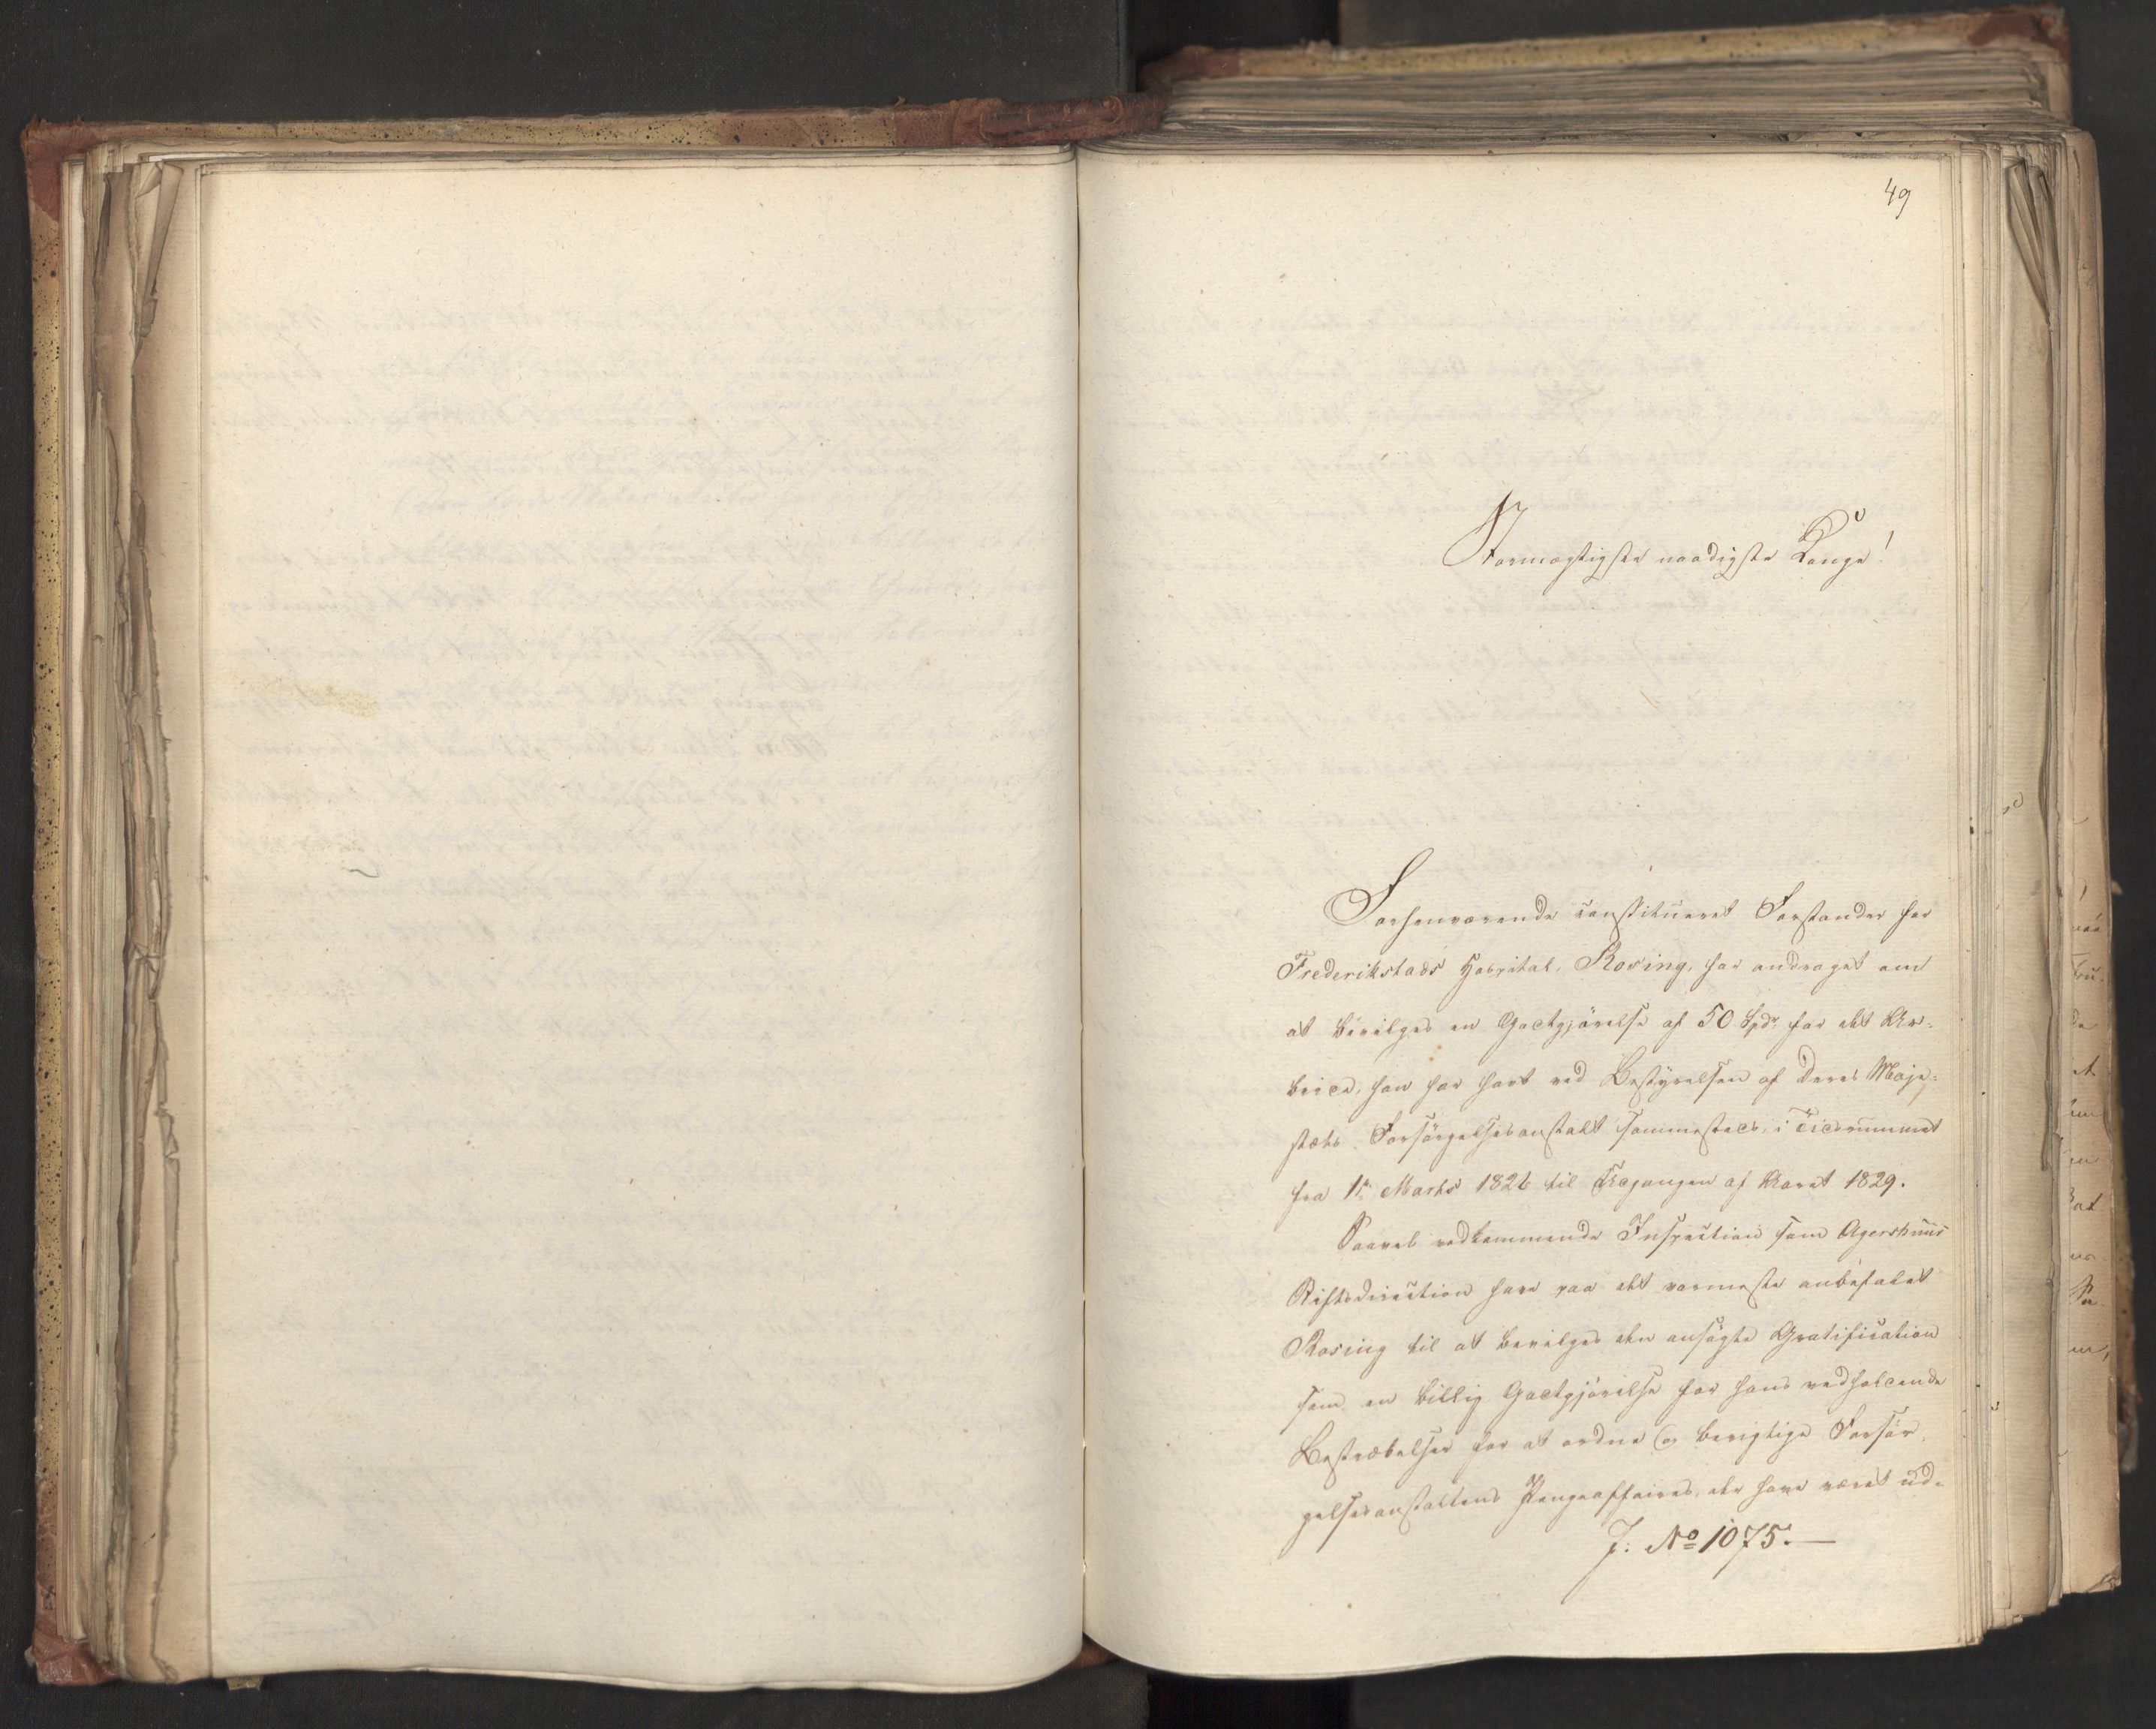 49
Stormægtigste naadigste Konge!
Forhenværende constitueret Forstander for
Frederikstads Hospital, Rosing, har andraget om
at bevilges en Godtgjörelse af 50 Spdr for det Ar-
beide, han har havt ved Bestyrelsen af Deres Maje-
stæts Forsörgelsesanstalt sammesteds, i Tidsrummet
fra 1ste Marts 1826 til Udgangen af Aaret 1829.
Saavel vedkommende Inspection som Agershuus
Stiftsdirection have paa det varmeste anbefalet
Rosing til at bevilges den ansögte Gratification
som en billig Godtgjörelse for hans vedholdende
Bestræbelser for at ordne og berigtige Forsör-
gelsesanstaltens Pengeaffairer, der have været ud-
J: No 1075.—